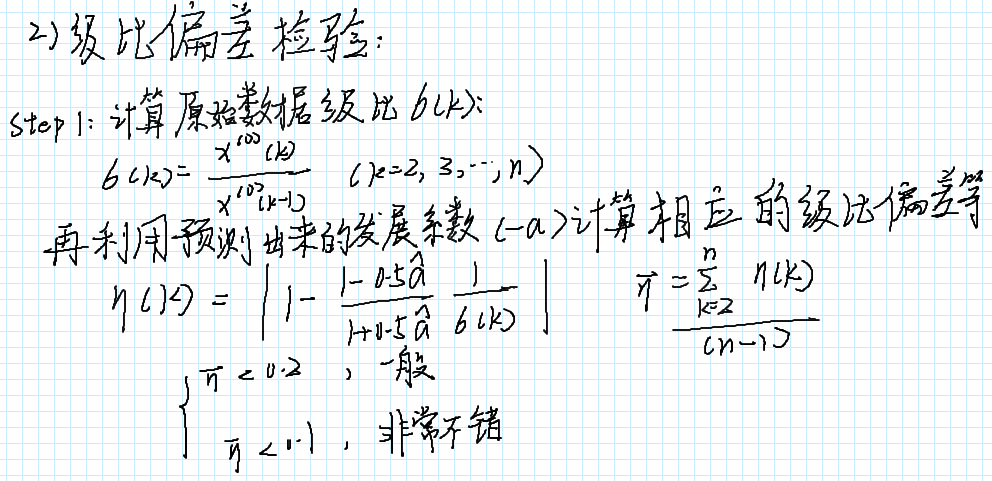 2) 级比偏差检验:
Step 1: 计算原始数据级比 σ(k):
σ(k) = x⁽⁰⁾(k) / x⁽⁰⁾(k-1) (k=2, 3, ⋯, n)
再利用预测出来的发展系数 (-a) 计算相应的级比偏差等
η(k) = | 1 - (1-0.5â)/(1+0.5â) 1/σ(k) | η̄ = ∑ₖ₌₂ⁿ η(k) / (n-1)
{ η̄ < 0.2 , 一般
η̄ < 0.1 , 非常不错